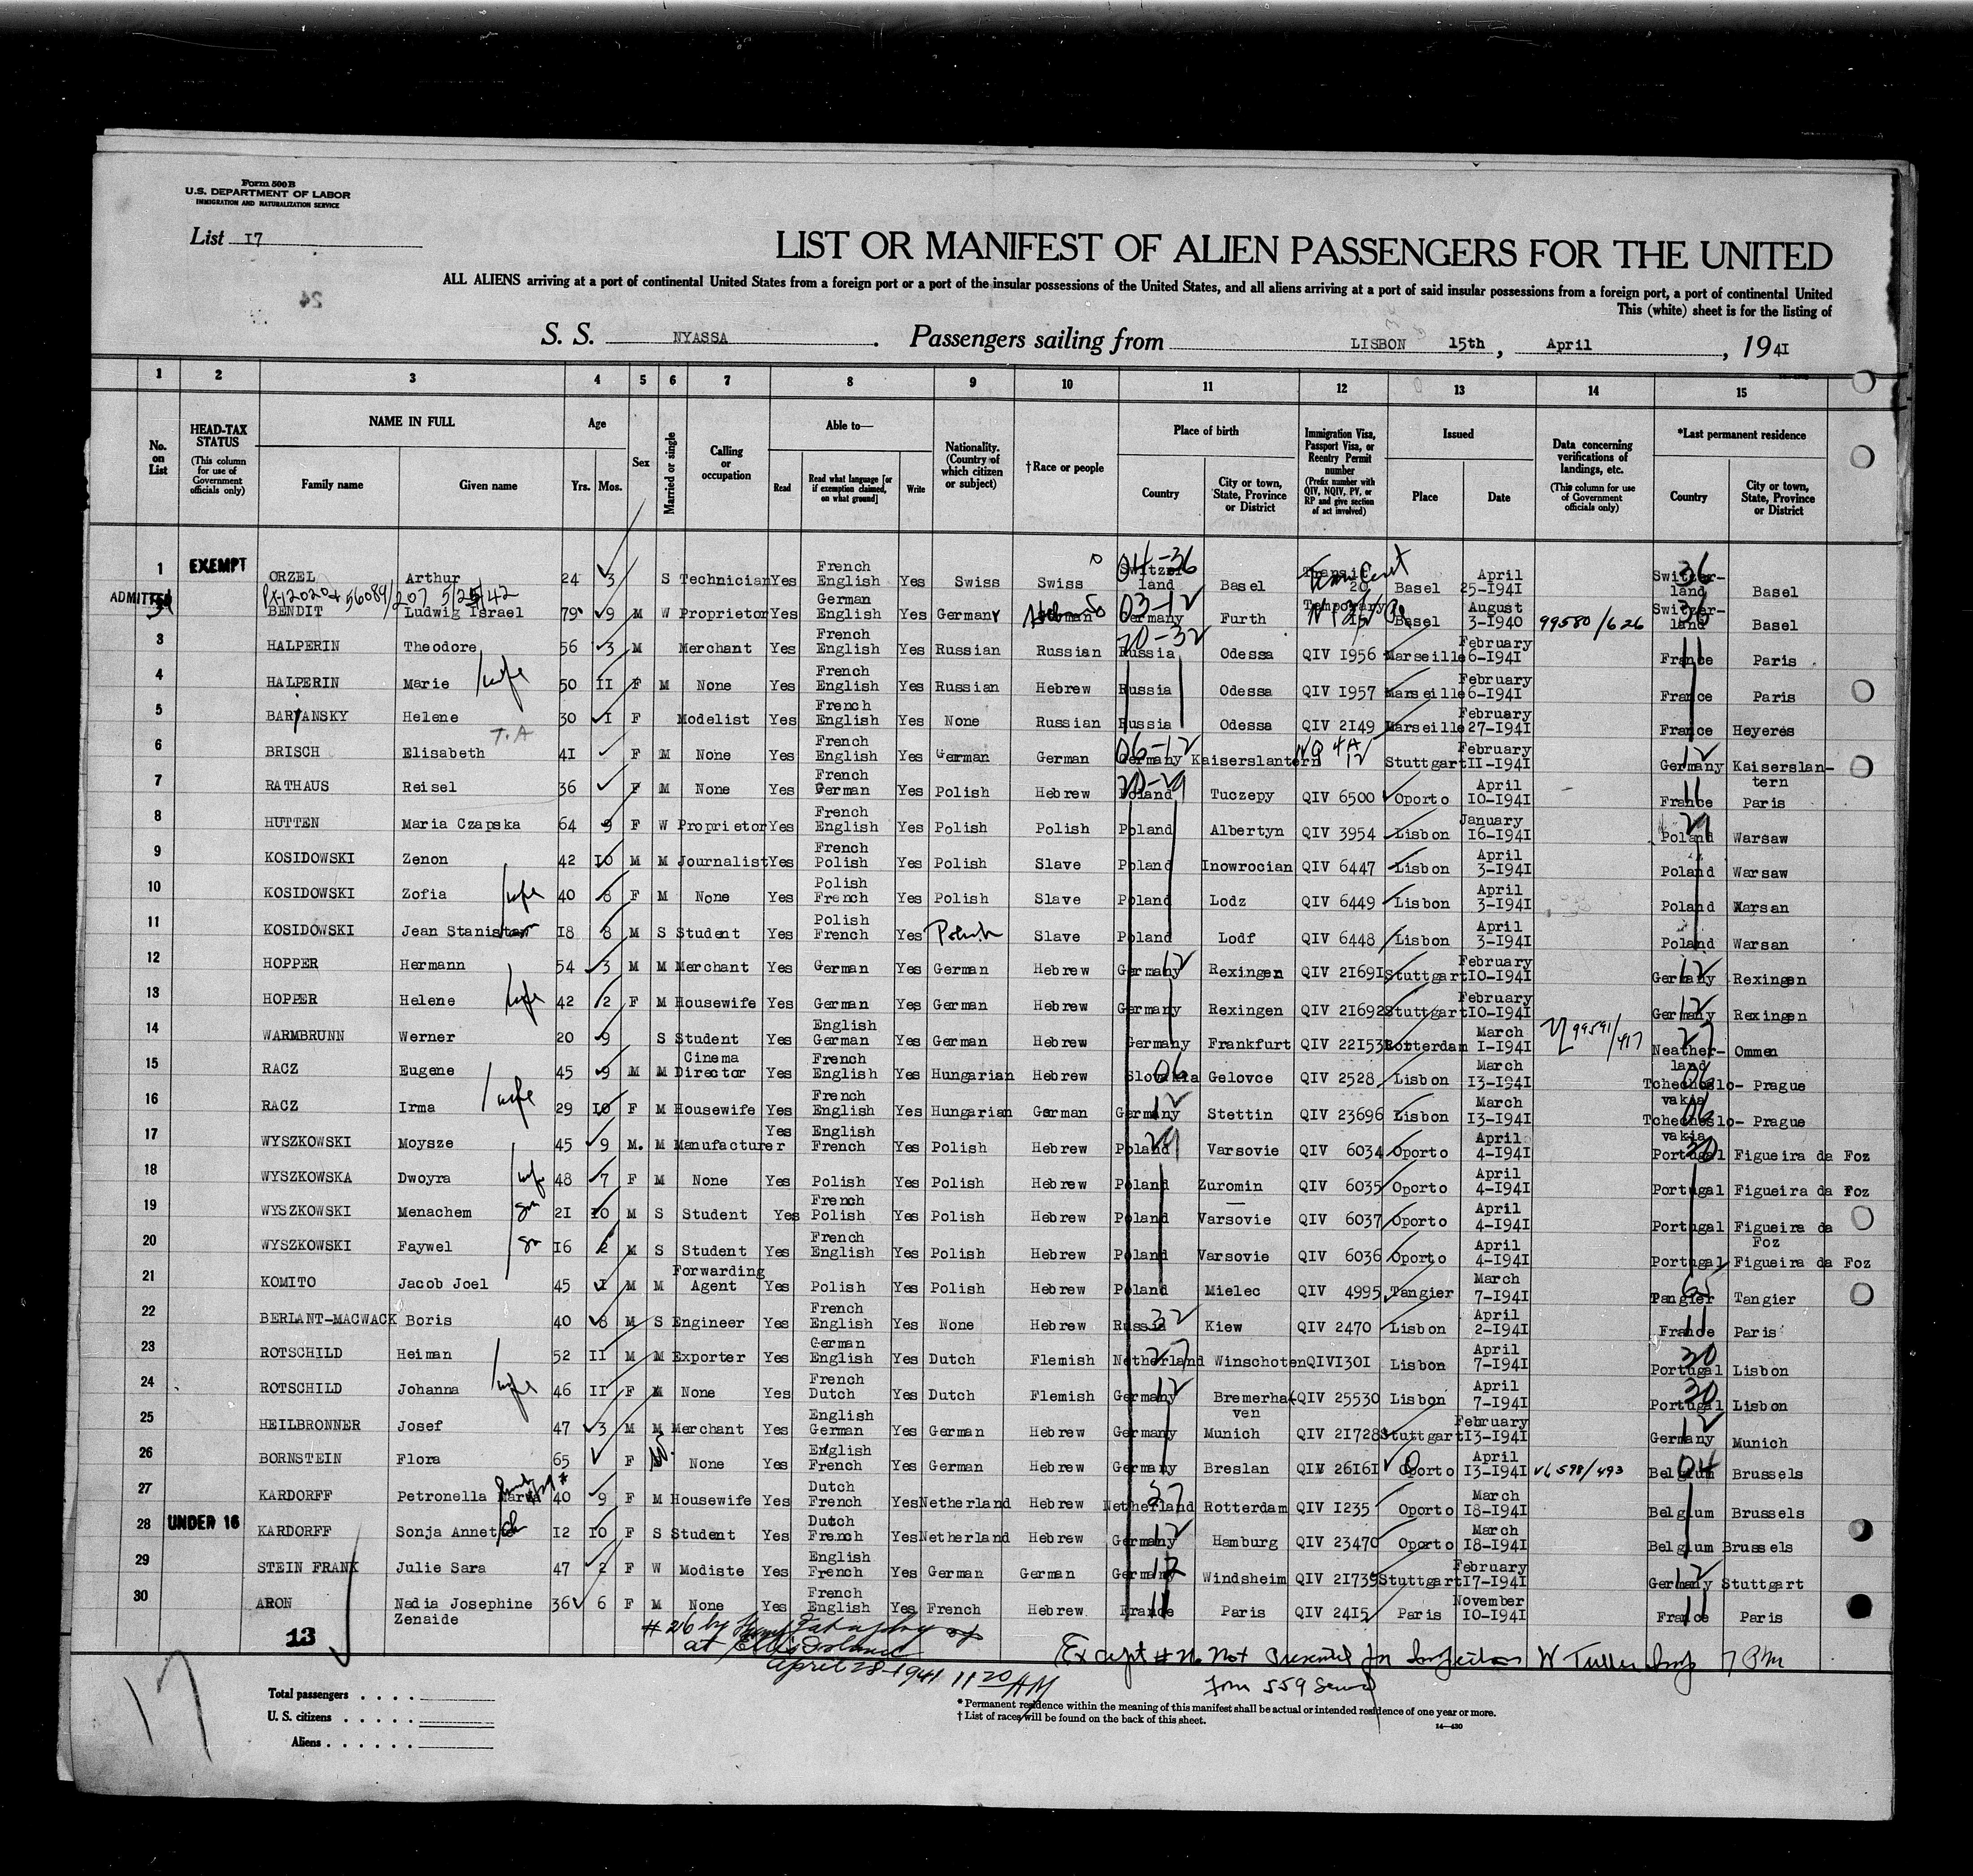 Form 500 B
U.S. DEPARTMENT OF LABOR
IMMIGRATION AND NATURALIZATION SERVICE
List 17
LIST OR MANIFEST OF ALIEN PASSENGERS FOR THE UNITED
ALL ALIENS arriving at a port of continental United States from a foreign port or a port of the insular possessions of the United States, and all aliens arriving at a port of said insular possessions from a foreign port, a port of continental United
This (white) sheet is for the listing of
24
S. S. NYASSA . Passengers sailing from LISBON 15th , April , 1941
1 2 3 4 5 6 7 8 9 10 11 12 13 14 15
No. on List
HEAD-TAX STATUS (This column for use of Government officials only)
NAME IN FULL Family name Given name
Age Yrs. Mos.
Sex
Married or single
Calling or occupation
Able to— Read Read what language [or if exemption claimed, on what ground] Write
Nationality. (Country of which citizen or subject)
†Race or people
Place of birth Country City or town, State, Province or District
Immigration Visa, Passport Visa, or Reentry Permit number (Prefix number with QIV, NQIV, PV, or RP and give section of act involved)
Issued Place Date
Data concerning verifications of landings, etc. (This column for use of Government officials only)
*Last permanent residence Country City or town, State, Province or District
1 EXEMPT ORZEL Arthur 24 3 S Technician Yes French English Yes Swiss Swiss 04-36 Switzerland Basel Transit 20 Basel April 25-1941 36 Switzer-land Basel
ADMITTED 56089/207 5/25/42
BENDIT Ludwig Israel 79 9 M W Proprietor Yes German English Yes Germany 03-12 Germany Furth Temporary Basel August 3-1940 99580/626 36 Switzer-land Basel
3 HALPERIN Theodore 56 3 M Merchant Yes French English Yes Russian Russian 20-32 Russia Odessa QIV 1956 Marseille February 6-1941 11 France Paris
4 HALPERIN Marie wife 50 11 F M None Yes French English Yes Russian Hebrew Russia Odessa QIV 1957 Marseille February 6-1941 France Paris
5 BARYANSKY Helene 30 1 F Modelist Yes French English Yes None Russian Russia Odessa QIV 2149 Marseille February 27-1941 France Heyeres
6 BRISCH Elisabeth T.A 41 F M None Yes French English Yes German German 06-12 Germany Kaiserslantern 12 Stuttgart February 11-1941 12 Germany Kaiserslan-tern
7 RATHAUS Reisel 36 F M None Yes French German Yes Polish Hebrew 20-29 Poland Tuczepy QIV 6500 Oporto April 10-1941 11 France Paris
8 HUTTEN Maria Czapska 64 9 F W Proprietor Yes French English Yes Polish Polish Poland Albertyn QIV 3954 Lisbon January 16-1941 29 Poland Warsaw
9 KOSIDOWSKI Zenon 42 10 M M Journalist Yes French Polish Yes Polish Slave Poland Inowrocian QIV 6447 Lisbon April 3-1941 Poland Warsaw
10 KOSIDOWSKI Zofia wife 40 8 F M None Yes Polish French Yes Polish Slave Poland Lodz QIV 6449 Lisbon April 3-1941 Poland Warsan
11 KOSIDOWSKI Jean Stanislaw 18 8 M S Student Yes Polish French Yes Polish Slave Poland Lodf QIV 6448 Lisbon April 3-1941 Poland Warsan
12 HOPPER Hermann 54 3 M M Merchant Yes German Yes German Hebrew 12 Germany Rexingen QIV 21691 Stuttgart February 10-1941 12 Germany Rexingen
13 HOPPER Helene wife 42 2 F M Housewife Yes German Yes German Hebrew Germany Rexingen QIV 21692 Stuttgart February 10-1941 12 Germany Rexingen
14 WARMBRUNN Werner 20 9 S Student Yes English German Yes German Hebrew Germany Frankfurt QIV 22153 Rotterdam March 1-1941 99591/417 27 Neather-land Ommen
15 RACZ Eugene 45 9 M M Cinema Director Yes French English Yes Hungarian Hebrew 06 Slovakia Gelovce QIV 2528 Lisbon March 13-1941 06 Tchechoslo-vakia Prague
16 RACZ Irma wife 29 10 F M Housewife Yes French English Yes Hungarian German 12 Germany Stettin QIV 23696 Lisbon March 13-1941 06 Tchechoslo-vakia Prague
17 WYSZKOWSKI Moysze 45 9 M. M Manufacturer Yes English French Yes Polish Hebrew 29 Poland Varsovie QIV 6034 Oporto April 4-1941 30 Portugal Figueira da Foz
18 WYSZKOWSKA Dwoyra wife 48 7 F M None Yes Polish Yes Polish Hebrew Poland Zuromin QIV 6035 Oporto April 4-1941 Portugal Figueira da Foz
19 WYSZKOWSKI Menachem son 21 10 M S Student Yes French Polish Yes Polish Hebrew Poland Varsovie QIV 6037 Oporto April 4-1941 Portugal Figueira da Foz
20 WYSZKOWSKI Faywel son 16 2 M S Student Yes French English Yes Polish Hebrew Poland Varsovie QIV 6036 Oporto April 4-1941 Portugal Figueira da Foz
21 KOMITO Jacob Joel 45 1 M M Forwarding Agent Yes Polish Yes Polish Hebrew Poland Mielec QIV 4995 Tangier March 7-1941 65 Tangier Tangier
22 BERLANT-MACWACK Boris 40 8 M S Engineer Yes French English Yes None Hebrew 32 Russia Kiew QIV 2470 Lisbon April 2-1941 11 France Paris
23 ROTSCHILD Heiman 52 11 M M Exporter Yes German English Yes Dutch Flemish 27 Netherland Winschoten QIV1301 Lisbon April 7-1941 30 Portugal Lisbon
24 ROTSCHILD Johanna wife 46 11 F M None Yes French Dutch Yes Dutch Flemish 12 Germany Bremerhaven QIV 25530 Lisbon April 7-1941 30 Portugal Lisbon
25 HEILBRONNER Josef 47 3 M M Merchant Yes English German Yes German Hebrew Germany Munich QIV 21728 Stuttgart February 13-1941 12 Germany Munich
26 BORNSTEIN Flora 65 F W None Yes English French Yes German Hebrew Germany Breslan QIV 26161 Oporto April 13-1941 598/493 04 Belgium Brussels
27 KARDORFF Petronella Maria 40 9 F M Housewife Yes Dutch French Yes Netherland Hebrew 27 Netherland Rotterdam QIV 1235 Oporto March 18-1941 Belgium Brussels
28 UNDER 16 KARDORFF Sonja Annet ch 12 10 F S Student Yes Dutch French Yes Netherland Hebrew 12 Germany Hamburg QIV 23470 Oporto March 18-1941 Belgium Brussels
29 STEIN FRANK Julie Sara 47 2 F W Modiste Yes English French Yes German German 12 Germany Windsheim QIV 21739 Stuttgart February 17-1941 12 Germany Stuttgart
30 ARON Nadia Josephine Zenaide 36 6 F M None Yes French English Yes French Hebrew 11 France Paris QIV 2415 Paris November 10-1941 11 France Paris
13
# 26 by
at Ellis Island
April 28-1941 11 20 AM
Except # 26 Not Presented for Inspection W Tuller Insp 7 PM
Form 559 Served
17
Total passengers . . . .
U. S. citizens . . . . .
Aliens . . . . . .
* Permanent residence within the meaning of this manifest shall be actual or intended residence of one year or more.
† List of races will be found on the back of this sheet.
14—430